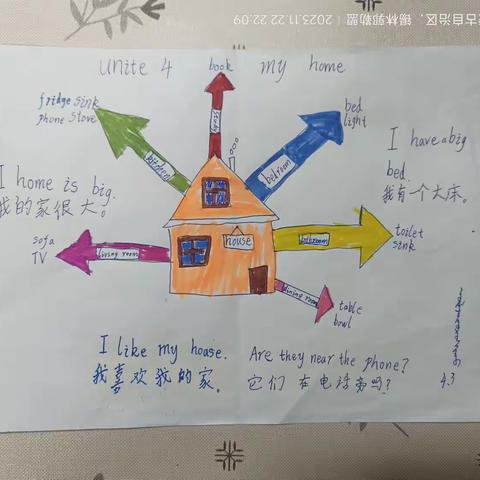 古自治区、锡林郭勒盟 | 2023.11.22 22:09
Unite 4 my home
book
fridge sink
phone stove
bed
light
study
kitchen
bedroom
I have a big
bed.
我有个大床。
I home is big.
我的家很大。
sofa
TV
living room
house
bathroom
toilet
sink
dining room
table
bowl
I like my house.
我喜欢我的家。
Are they near the phone?
它们在电话旁吗？
4.3